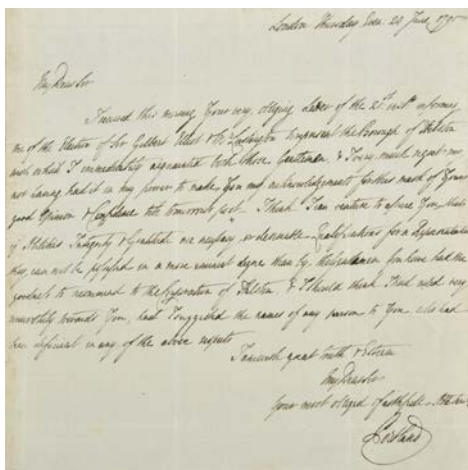 London Thursday Even. 24 June 1795
My Dear Sir
I received this morning Your very obliging Letter of the 21st inst. informing
me of the Election of Sr Gilbert West & Mr Lushington to represent the Borough of Helston
with which I immediately acquainted both those Gentlemen, & I very much regret my
not having had it in my power to make You my acknowledgements for this mark of Your
good Opinion & Confidence till tomorrow's post. I think I can venture to assure You, that
if Abilities Integrity & Gratitude are necessary or desireable Qualifications for a Representative
they can not be possessed in a more eminent degree than by the Gentlemen You have had the
goodness to recommend to the Corporation of Helston, & I should think I had acted very
unworthily towards You, had I suggested the names of any person to You who had
been deficient in any of the above respects
I am with great truth & Esteem
My Dear Sir
Your most obliged & faithfull
Portland